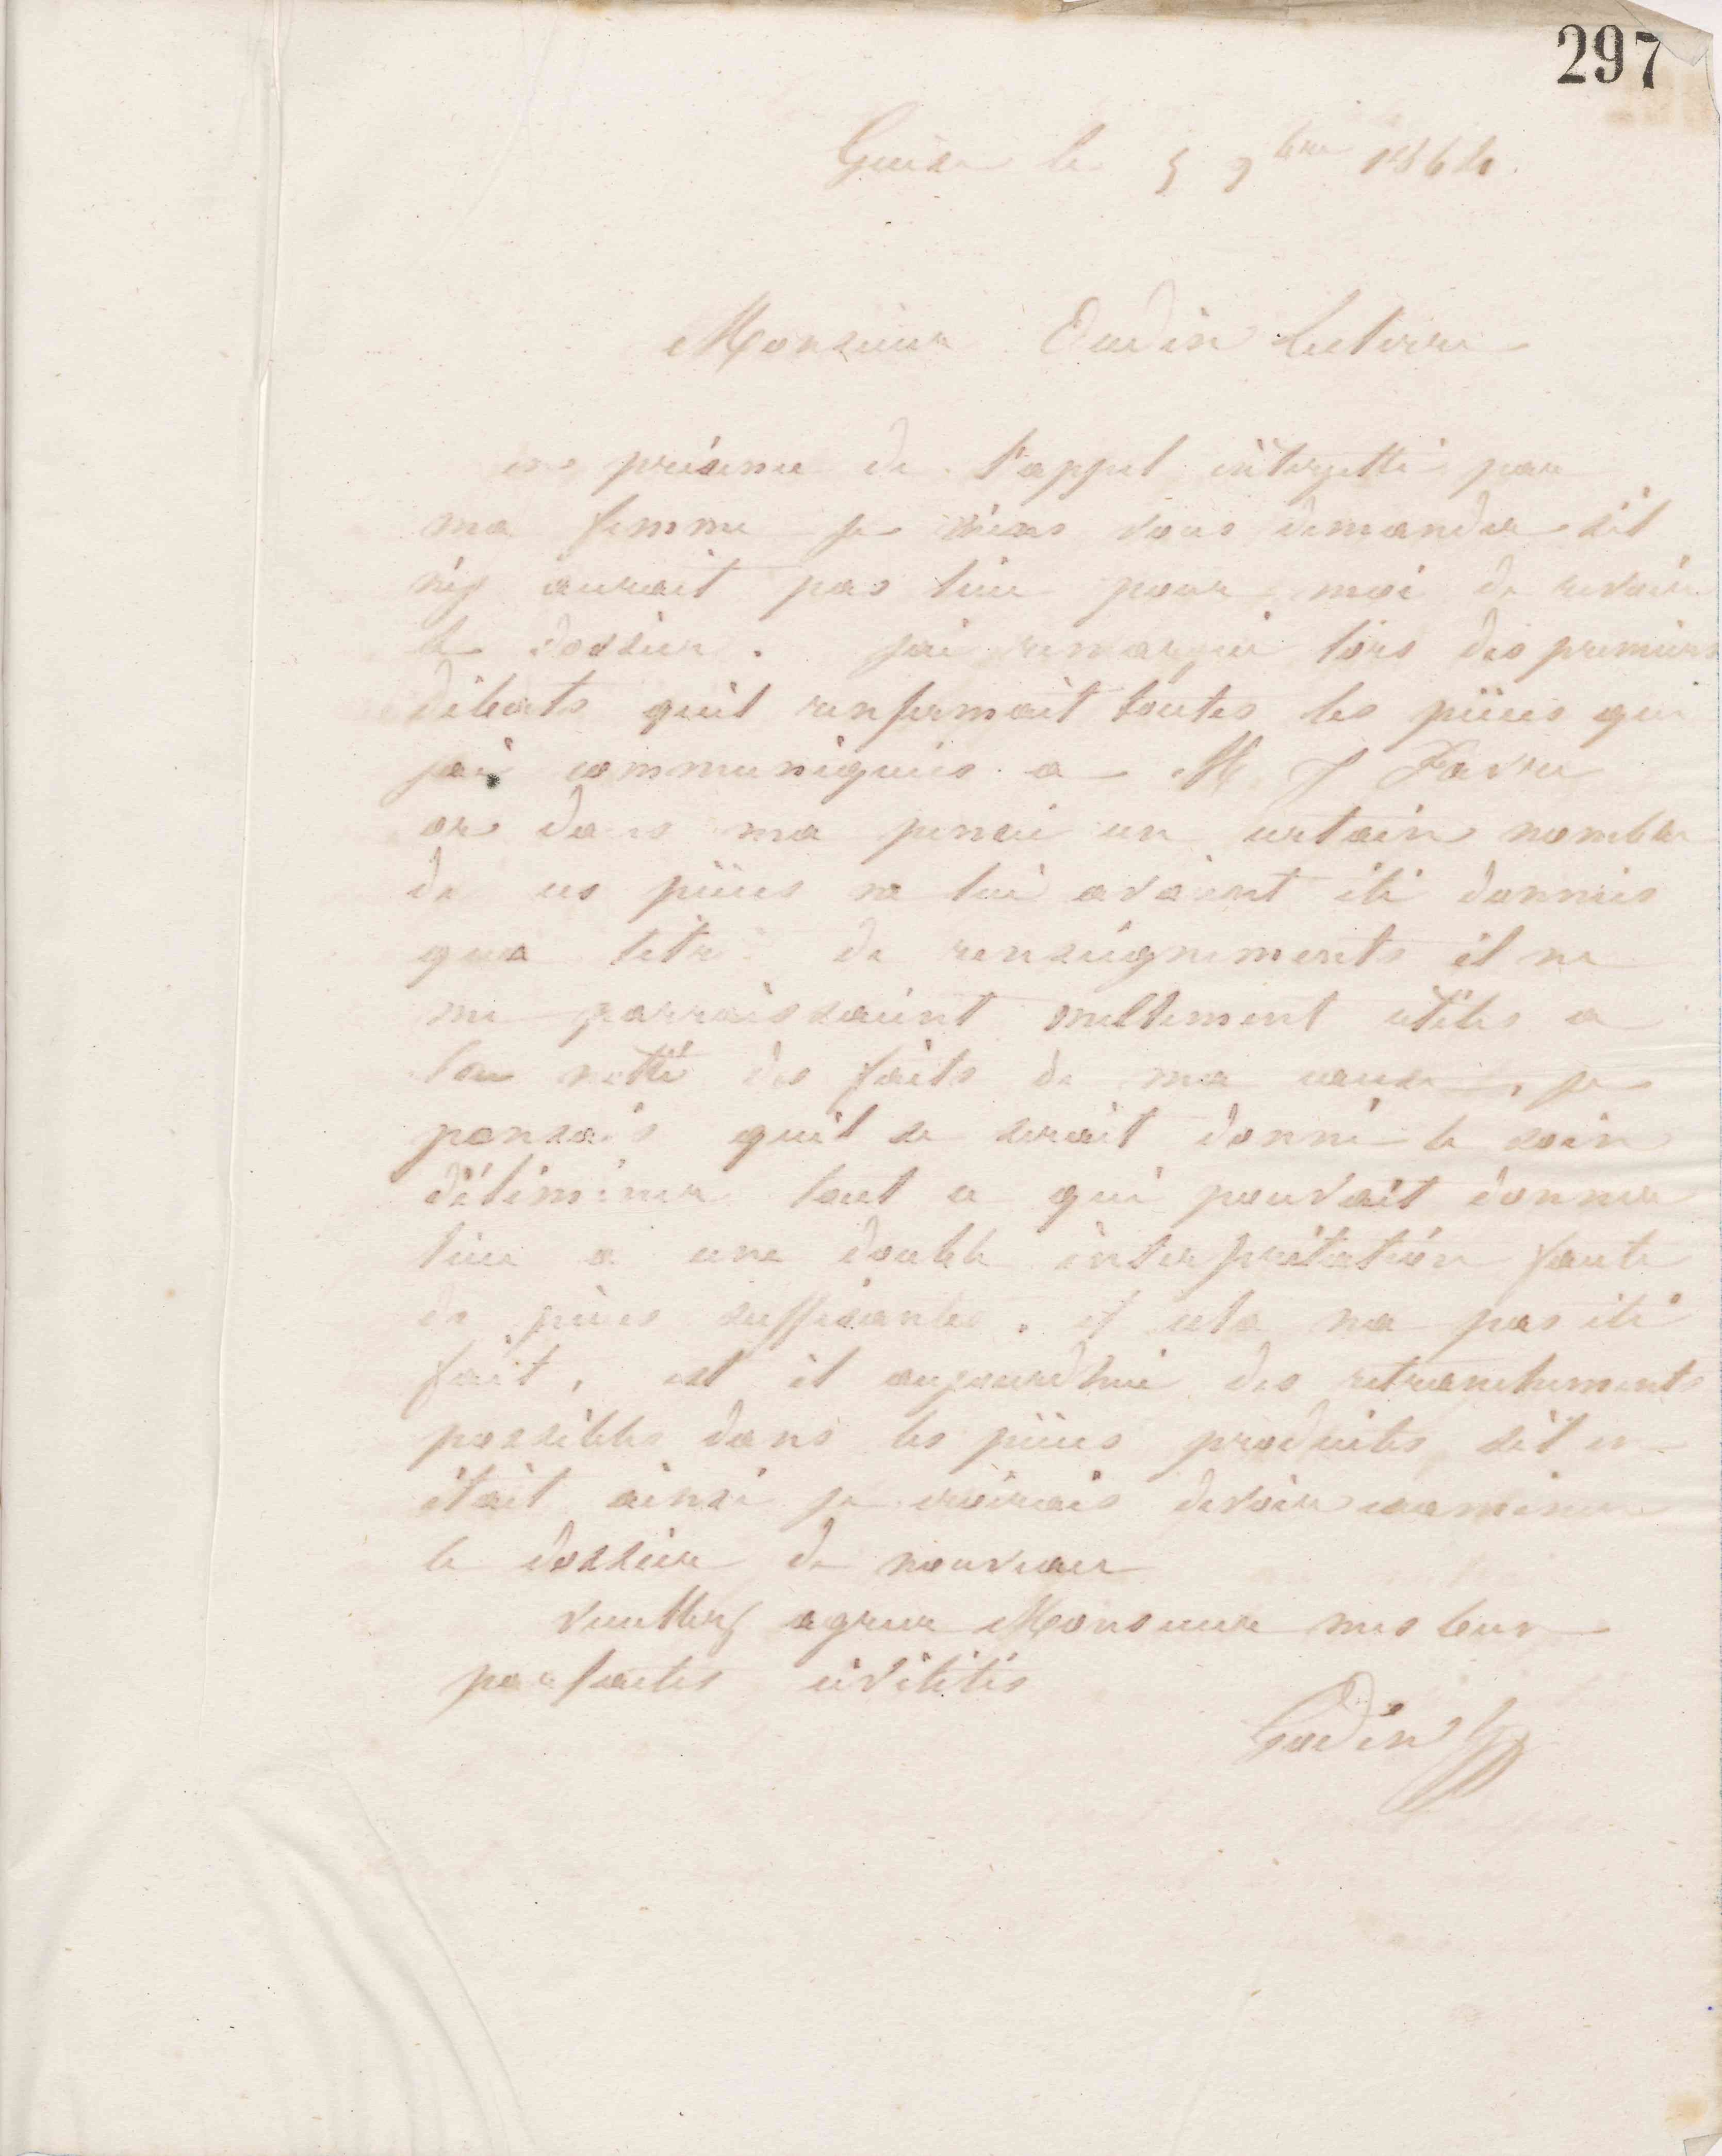 297
Guise le 5 9bre 1864
Monsieur Oudin Leclerre
en présence de l'appel interjetté par
ma femme je viens vous demander s'il
n'y aurait pas lieu pour moi de revoir
le dossier. j'ai remarqué lors des premiers
débats qu'il renfermait toutes les pièces que
j'ai communiquées a M J Favre
or dans ma pensée un certain nombre
de ces pièces ne lui avaient été données
qua titre de renseignements il ne
me parraissaient nullement utiles a
la netté des faits de ma cause, je
pensais qu'il se serait donné le soin
d'éliminer tout ce qui pouvait donner
lieu a une double interprétation faute
de pièces suffisantes. et cela na pas été
fait, est il aujourdhui des retranchements
possibles dans les pièces produites s'il en
était ainsi je croirais devoir examiner
le dossier de nouveau
veuillez agréer Monsieur mes
parfaites civilités
Godin